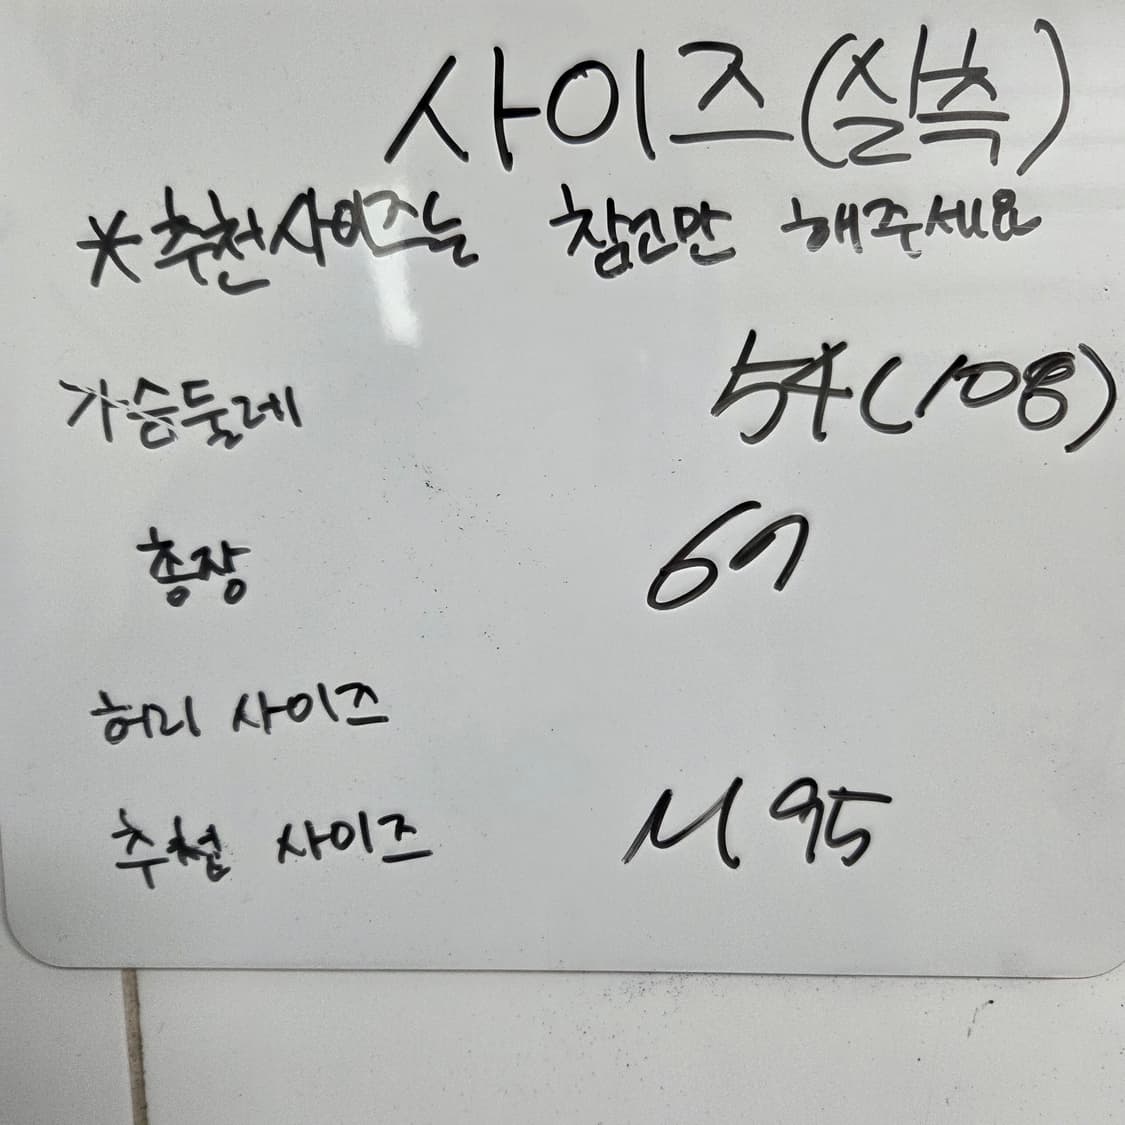 사이즈(실측)
*추천사이즈는 참고만 해주세요
가슴둘레 54(108)
총장 67
허리 사이즈
추천 사이즈 M 95